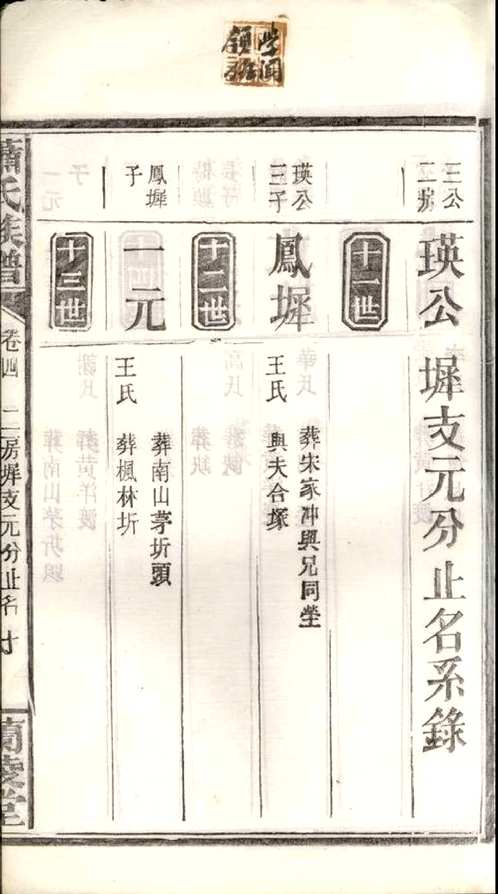 三公
二房
瑛公 墀支元分止名系錄
十一世
瑛公
三子
鳳墀
葬宋家冲與兄同塋
王氏 與夫合塚
十二世
鳳墀
子
一元
葬南山茅圻頭
王氏 葬楓林圻
十三世
蕭氏族譜
卷四 二房墀支元分止名
蘭陵堂